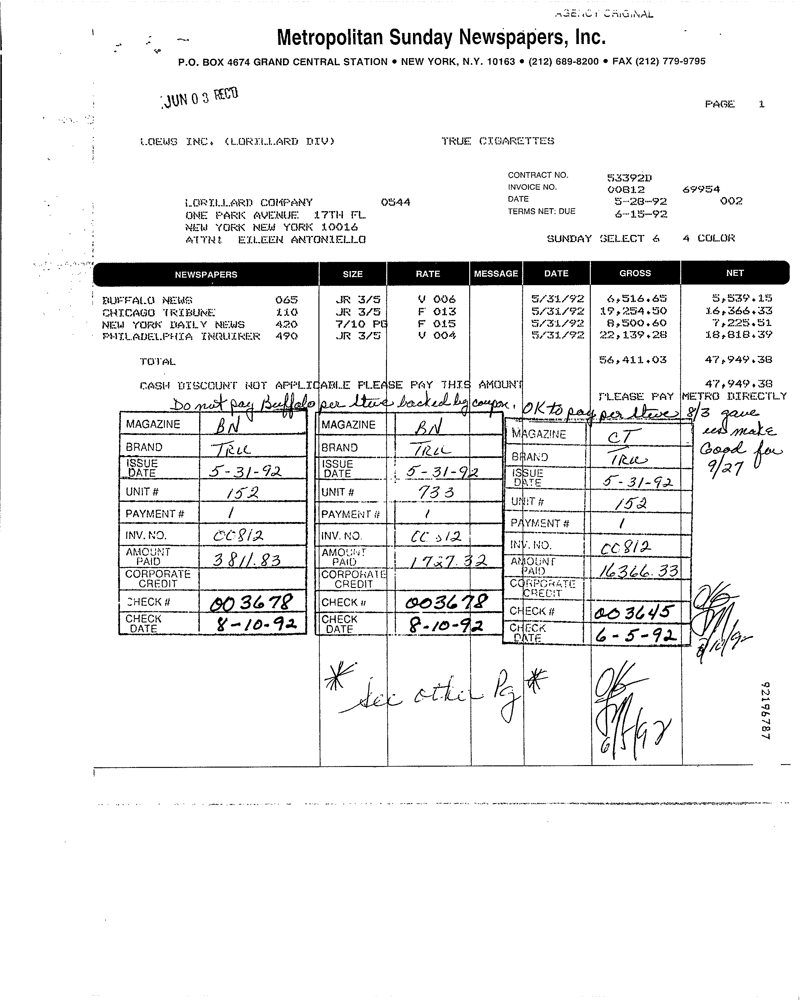 AGENCY ORIGINAL
Metropolitan Sunday Newspapers, Inc.
P.O. BOX 4674 GRAND CENTRAL STATION • NEW YORK, N.Y. 10163 • (212) 689-8200 • FAX (212) 779-9795
JUN 03 REC'D
PAGE 1
LOEWS INC. (LORILLARD DIV) TRUE CIGARETTES
CONTRACT NO. 53392D
INVOICE NO. 00812 69954
DATE 5-28-92 002
TERMS NET: DUE 6-15-92
LORILLARD COMPANY 0544
ONE PARK AVENUE 17TH FL
NEW YORK NEW YORK 10016
ATTN: EILEEN ANTONIELLO
SUNDAY SELECT 6 4 COLOR
NEWSPAPERS SIZE RATE MESSAGE DATE GROSS NET
BUFFALO NEWS 065 JR 3/5 V 006 5/31/92 6,516.65 5,539.15
CHICAGO TRIBUNE 110 JR 3/5 F 013 5/31/92 19,254.50 16,366.33
NEW YORK DAILY NEWS 420 7/10 PG F 015 5/31/92 8,500.60 7,225.51
PHILADELPHIA INQUIRER 490 JR 3/5 V 004 5/31/92 22,139.28 18,818.39
TOTAL 56,411.03 47,949.38
CASH DISCOUNT NOT APPLICABLE PLEASE PAY THIS AMOUNT 47,949.38
PLEASE PAY METRO DIRECTLY
Do not pay Buffalo per Steve backed by coupon. OK to pay per Steve 8/3 gave
us make
Good for
9/27
MAGAZINE BN
BRAND True
ISSUE DATE 5-31-92
UNIT # 152
PAYMENT # 1
INV. NO. CC812
AMOUNT PAID 3811.83
CORPORATE CREDIT
CHECK # 003678
CHECK DATE 8-10-92
MAGAZINE BN
BRAND True
ISSUE DATE 5-31-92
UNIT # 733
PAYMENT # 1
INV. NO. CC812
AMOUNT PAID 1727.32
CORPORATE CREDIT
CHECK # 003678
CHECK DATE 8-10-92
MAGAZINE CT
BRAND True
ISSUE DATE 5-31-92
UNIT # 152
PAYMENT # 1
INV. NO. CC812
AMOUNT PAID 16366.33
CORPORATE CREDIT
CHECK # 003645
CHECK DATE 6-5-92
OK
8/10/92
* See other Pg *
OK
6/5/92
92196787